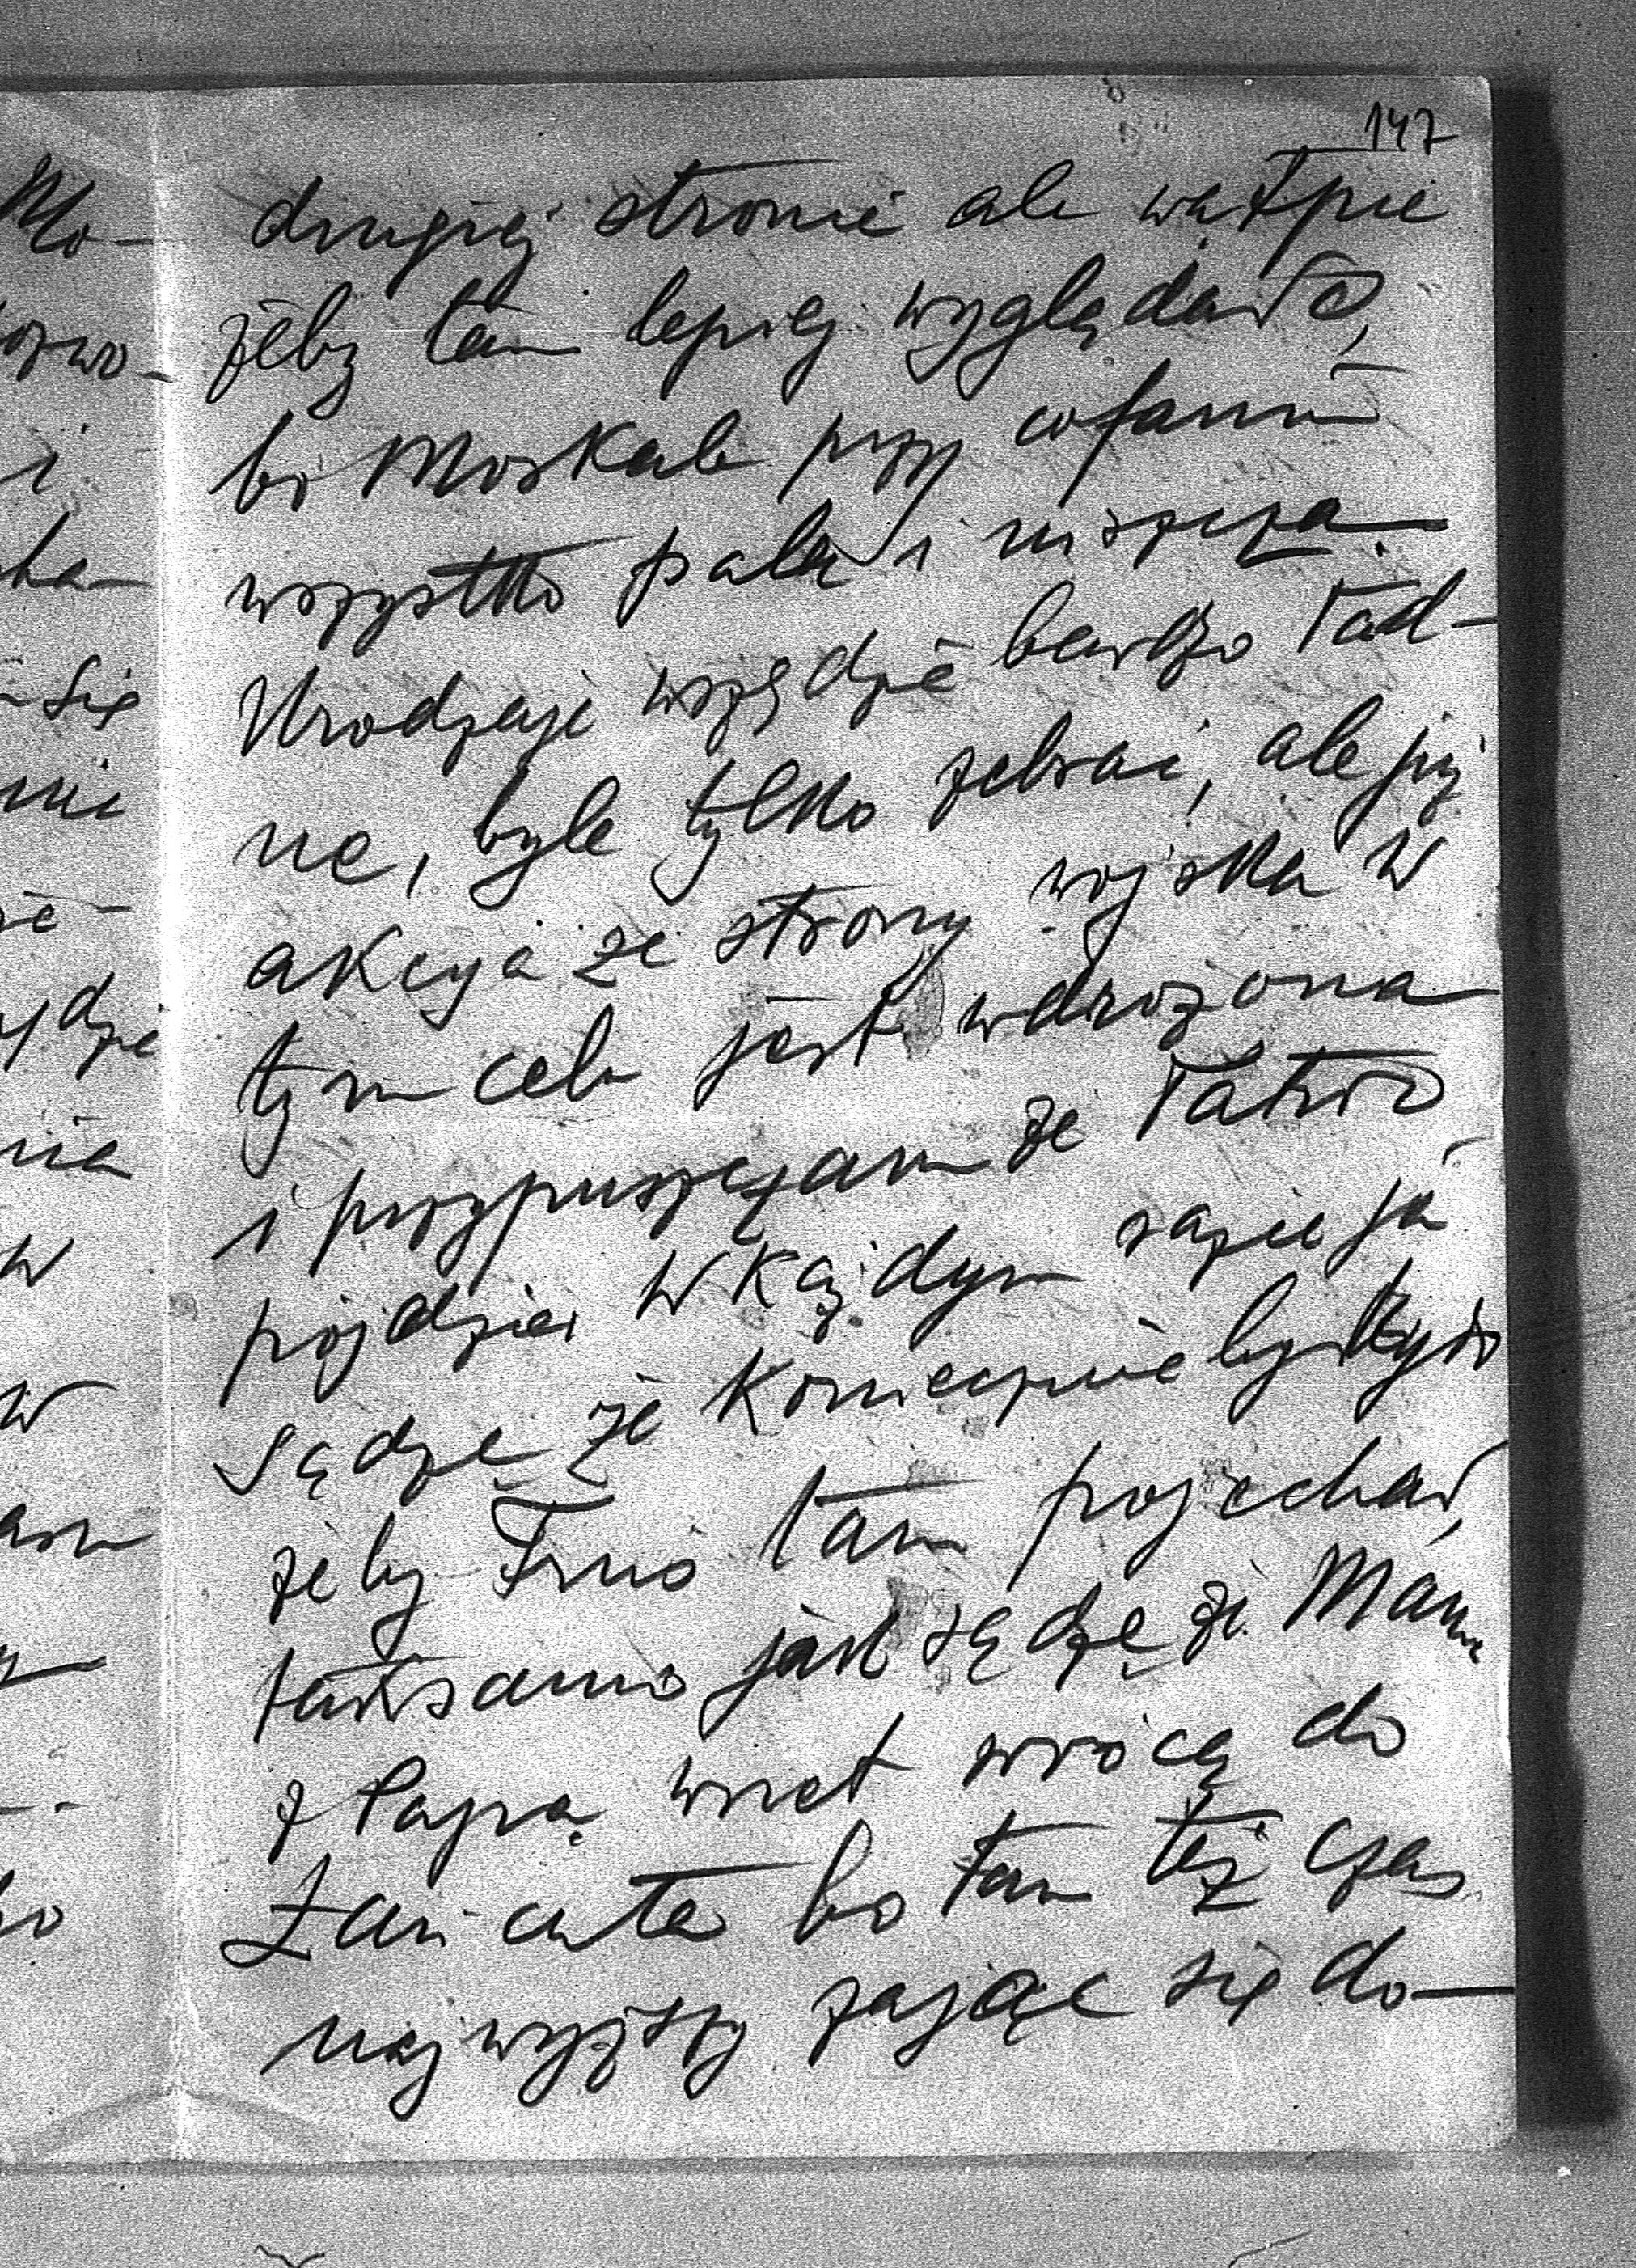 147
drugiej stronie ale wątpie
żeby tam lepiej wyglądało,
bo Moskale przy cofaniu
wszystko palą i niszczą.
Urodzaje wszędzie bardzo ład-
ne, byle tylko zebrać, ale już
akcya ze strony wojska w
tym celu jest wdrożona
i przypuszczam że łatwo
pójdzie. W każdym razie ja
sądzę że koniecznie by było
żeby Fruo tam pojechał,
taksamo jak sądzę że Mama
z Papą wnet wrócą do
Łańcuta bo tam też czas
najwyższy zająć się do-
Mo-
i
się
nie
dzie
nia
w
w